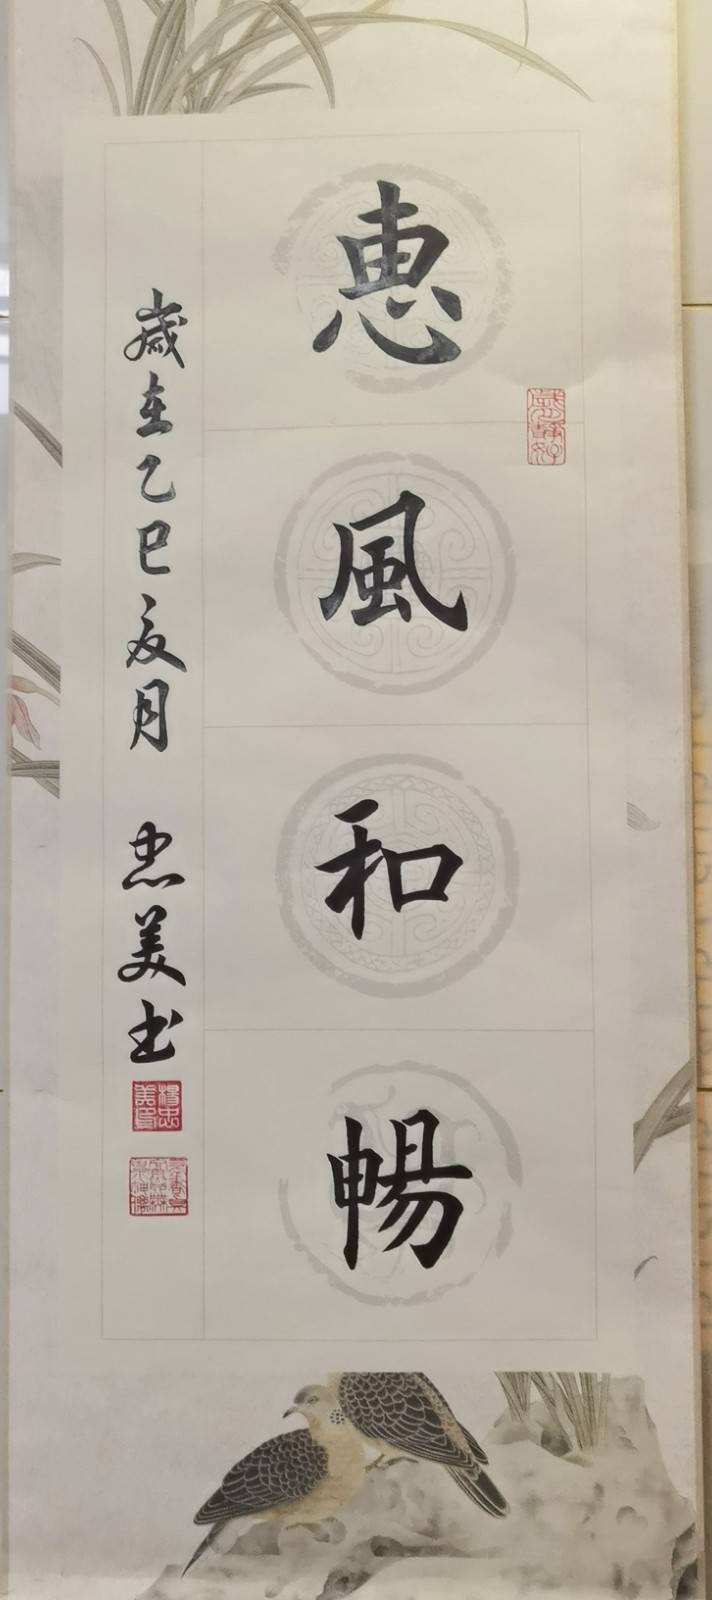 恵風和暢
歲在乙巳夏月 忠美书
楊忠美印